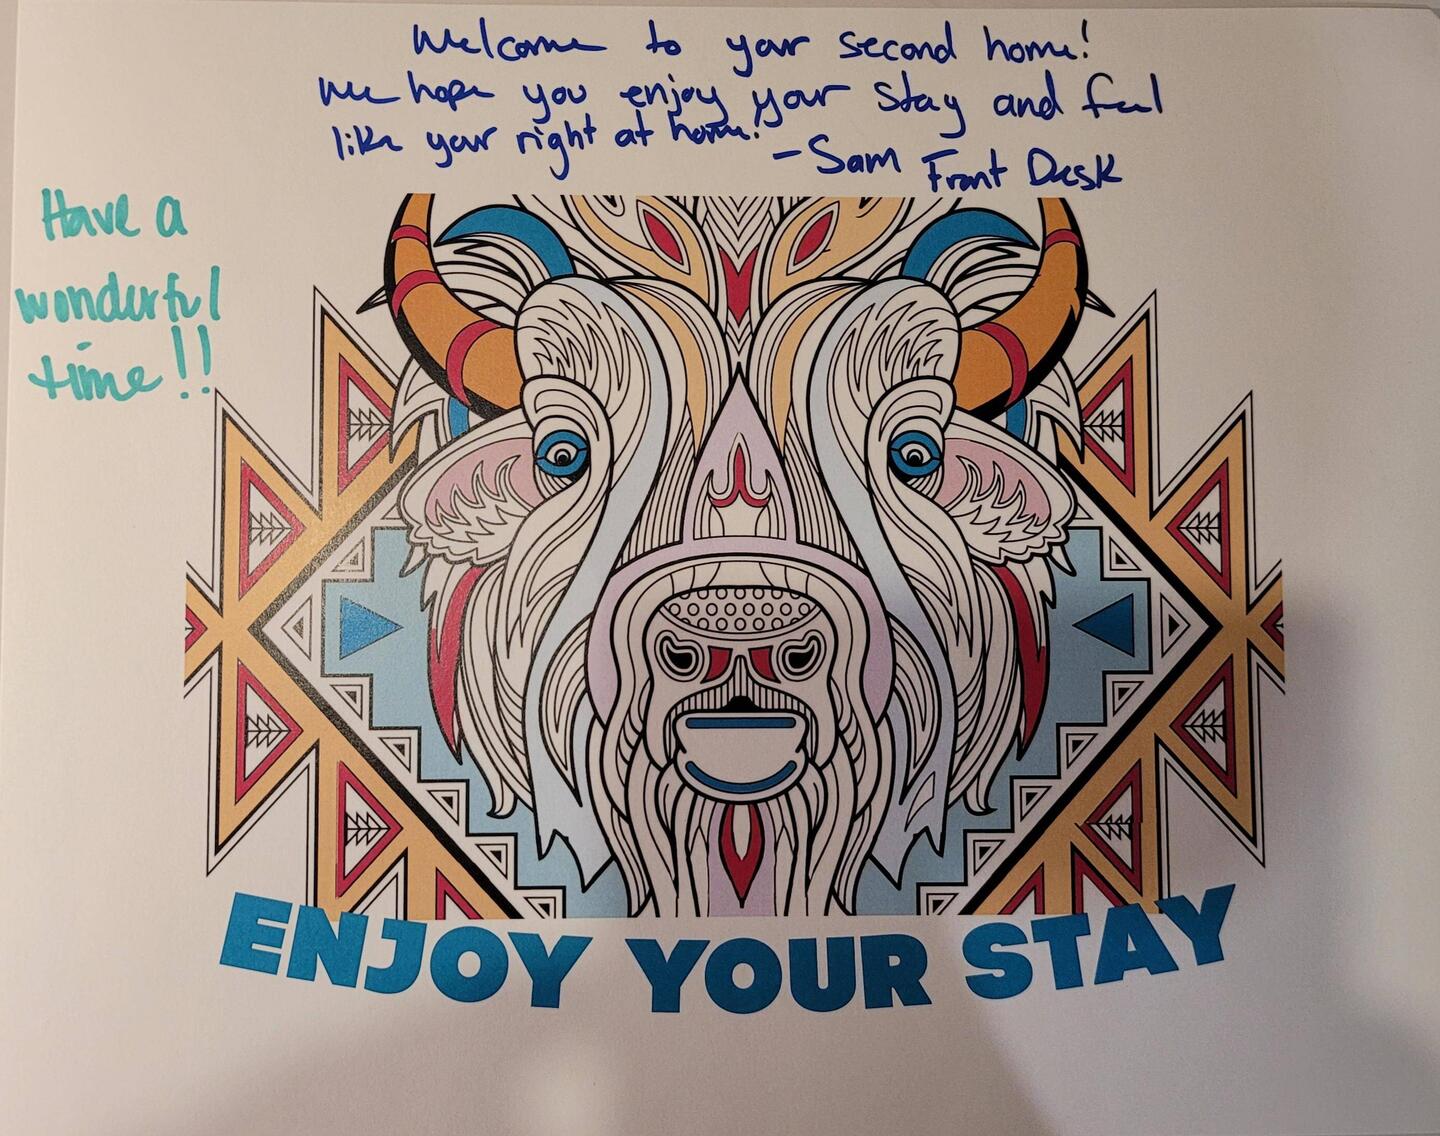 Welcome to your second home!
We hope you enjoy your stay and feel
like your right at home!
-Sam Front Desk
Have a
wonderful
time!!
ENJOY YOUR STAY